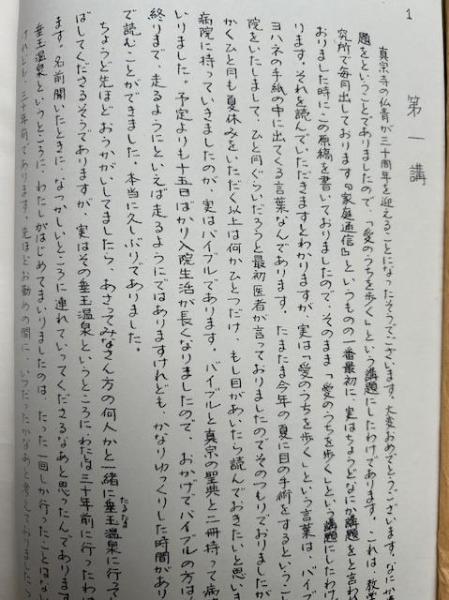 1
第一講
真宗寺の仏青が三十周年を迎えることになったそうでございます。大変おめでとうございます。なにか
題をとということでありましたので、「愛のうちを歩く」という講題にしたわけであります。これは、教学
究所で毎月出しております『家庭通信』というものの一番最初に、実はちょうどなにか講題をと言われ
おりました時にこの原稿を書いておりましたので、そのまま「愛のうちを歩く」という講題にしたわけ
ります。それを読んでいただきますとわかりますが、実は「愛のうちを歩く」という言葉は、バイブ
ヨハネの手紙の中に出てくる言葉なんであります。たまたま今年の夏に目の手術をするというこ
院をいたしまして、ひと月ぐらいだろうと最初医者が言っておりましたのでそのつもりでおりましたが
かくひと月も夏休みをいただく以上は何かひとつだけ、もし目があいたら読んでおきたいと思いま
病院に持っていきましたのが、実はバイブルであります。バイブルと真宗の聖典と二冊持って病
いりました。予定よりも十五日ばかり入院生活が長くなりましたので、おかげでバイブルの方は
終りまで、走るようにといえば走るようにではありますけれども、かなりゆっくりした時間があり
で読むことができました。本当に久しぶりでありました。
ちょうど先ほどおうかがいしてましたら、あさってみなさん方の何人かと一緒に垂玉温泉に行って
たるたま
ばしてくださるそうでありますが、実はその垂玉温泉というところにわたしは三十年前に行ったわけ
ます。名前聞いたときに、なつかしいところに連れていってくださるなあと思ったんであります
垂玉温泉というところに、わたしがはじめてまいりましたのは、たった一回しか行ったことはない
けれども、三十年前であります。先ほどお勤めの間に、いつだったかなあと考えておりましたら